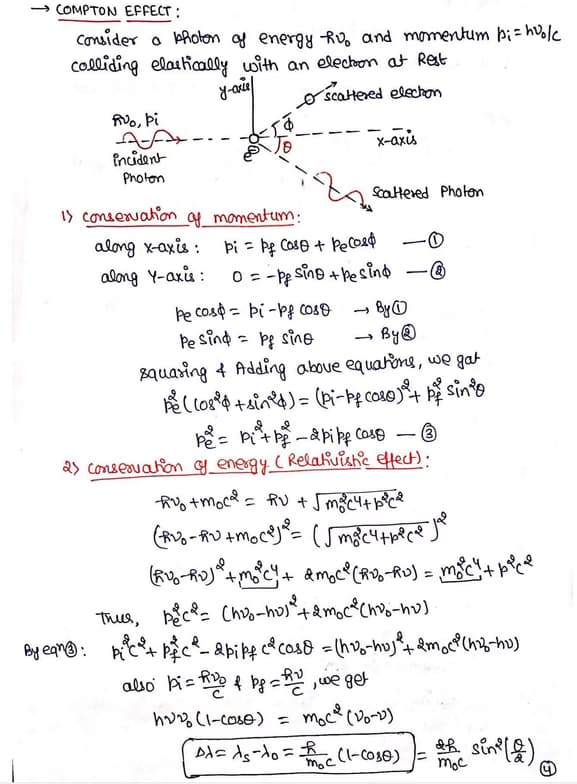 → COMPTON EFFECT:
Consider a photon of energy hν₀ and momentum pᵢ = hν₀/c
colliding elastically with an electron at Rest
y-axis
scattered electron
hν₀, pᵢ
ϕ
θ
x-axis
e⁻
incident
Photon
scattered Photon
1) conservation of momentum:
along x-axis : pᵢ = p_f cosθ + pₑcosϕ —①
along Y-axis : 0 = -p_f sinθ + pₑ sinϕ —②
pₑ cosϕ = pᵢ - p_f cosθ → By①
pₑ sinϕ = p_f sinθ → By②
squaring & Adding above equations, we get
pₑ²(cos²ϕ + sin²ϕ) = (pᵢ - p_f cosθ)² + p_f² sin²θ
pₑ² = pᵢ² + p_f² - 2pᵢp_f cosθ — ③
2) conservation of energy (Relativistic effect):
hν₀ + m₀c² = hν + √m₀²c⁴ + p²c²
(hν₀ - hν + m₀c²)² = (√m₀²c⁴ + p²c²)²
(hν₀ - hν)² + m₀²c⁴ + 2m₀c²(hν₀ - hν) = m₀²c⁴ + p²c²
Thus, pₑ²c² = (hν₀ - hν)² + 2m₀c²(hν₀ - hν)
By eqn③: pᵢ²c² + p_f²c² - 2pᵢp_f c² cosθ = (hν₀ - hν)² + 2m₀c²(hν₀ - hν)
also pᵢ = hν₀/c & p_f = hν/c , we get
hνν₀ (1 - cosθ) = m₀c² (ν₀ - ν)
Δλ = λₛ - λ₀ = h/m₀c (1 - cosθ) = 2h/m₀c sin²(θ/2) ④